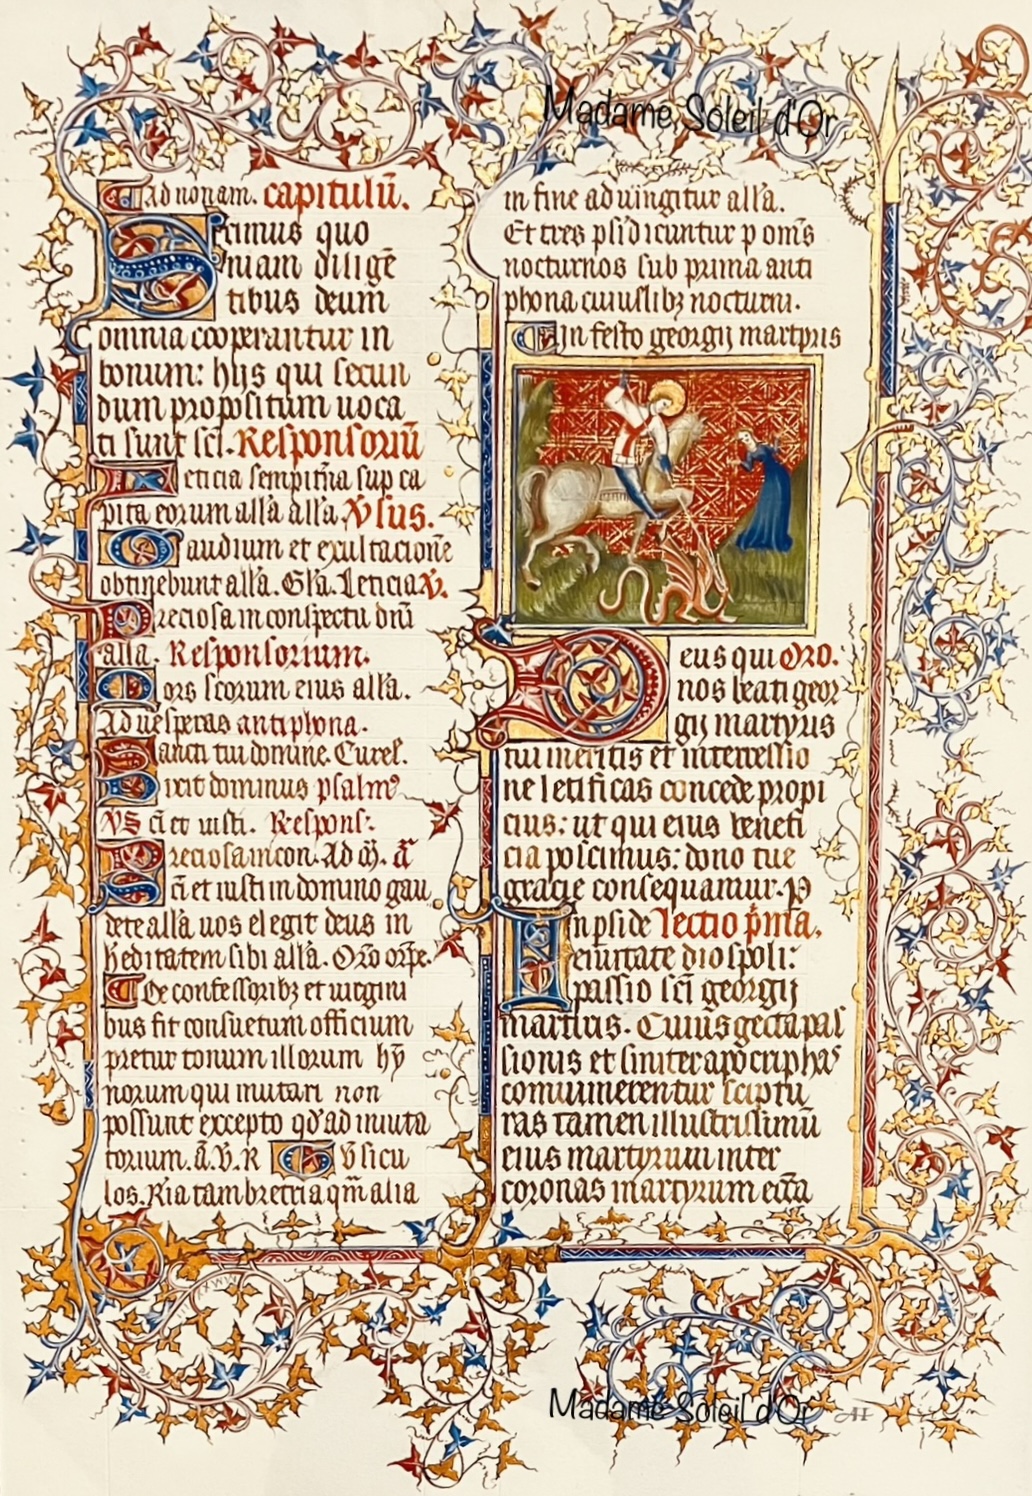 Madame Soleil d'Or
Ad nonam. capitulū.
Scimus quo
niam diligē
tibus deum
omnia cooperantur in
bonum: hijs qui secun
dum propositum uoca
ti sunt sci. Responsoriū
Leticia sempitn̄a sup ca
pita eorum alla alla. Vsus.
Gaudium et exultacione
obtinebunt alla. Gla. Leticia. V.
Preciosa in conspectu dnī
alla. Responsorium.
Mors scorum eius alla.
Ad uesperas antiphona.
Sancti tui domine.
Dixit dominus psalm9
et iusti. Respons.
Preciosa in con. Ad
Sci et iusti in domino gau
dete alla uos elegit deus in
heditatem sibi alla. Oro
De confessoribz et uirgini
bus fit consuetum officium
pretur tonum illorum hȳ
norum qui mutari non
possunt excepto qd ad inuita
torium. ā. V. R V sicu
alia
in fine adiungitur alla.
Et tres psi dicuntur p oms
nocturnos sub prima anti
phona cuiuslibz nocturni.
In festo georgij martyris
Deus qui Oro.
nos beati geor
gij martyris
tui meritis et intercessio
ne letificas concede propi
cius: ut qui eius benefi
cia poscimus: dono tue
gracie consequamur. P
Lectio pma.
ciuitate diospoli:
passio sci georgij
martiris. Cuius gecta pas
sionis et siniter apocriphas
scriptu
ras tamen illustrissimū
eius martyrium inter
coronas martyrum
Madame Soleil d'Or